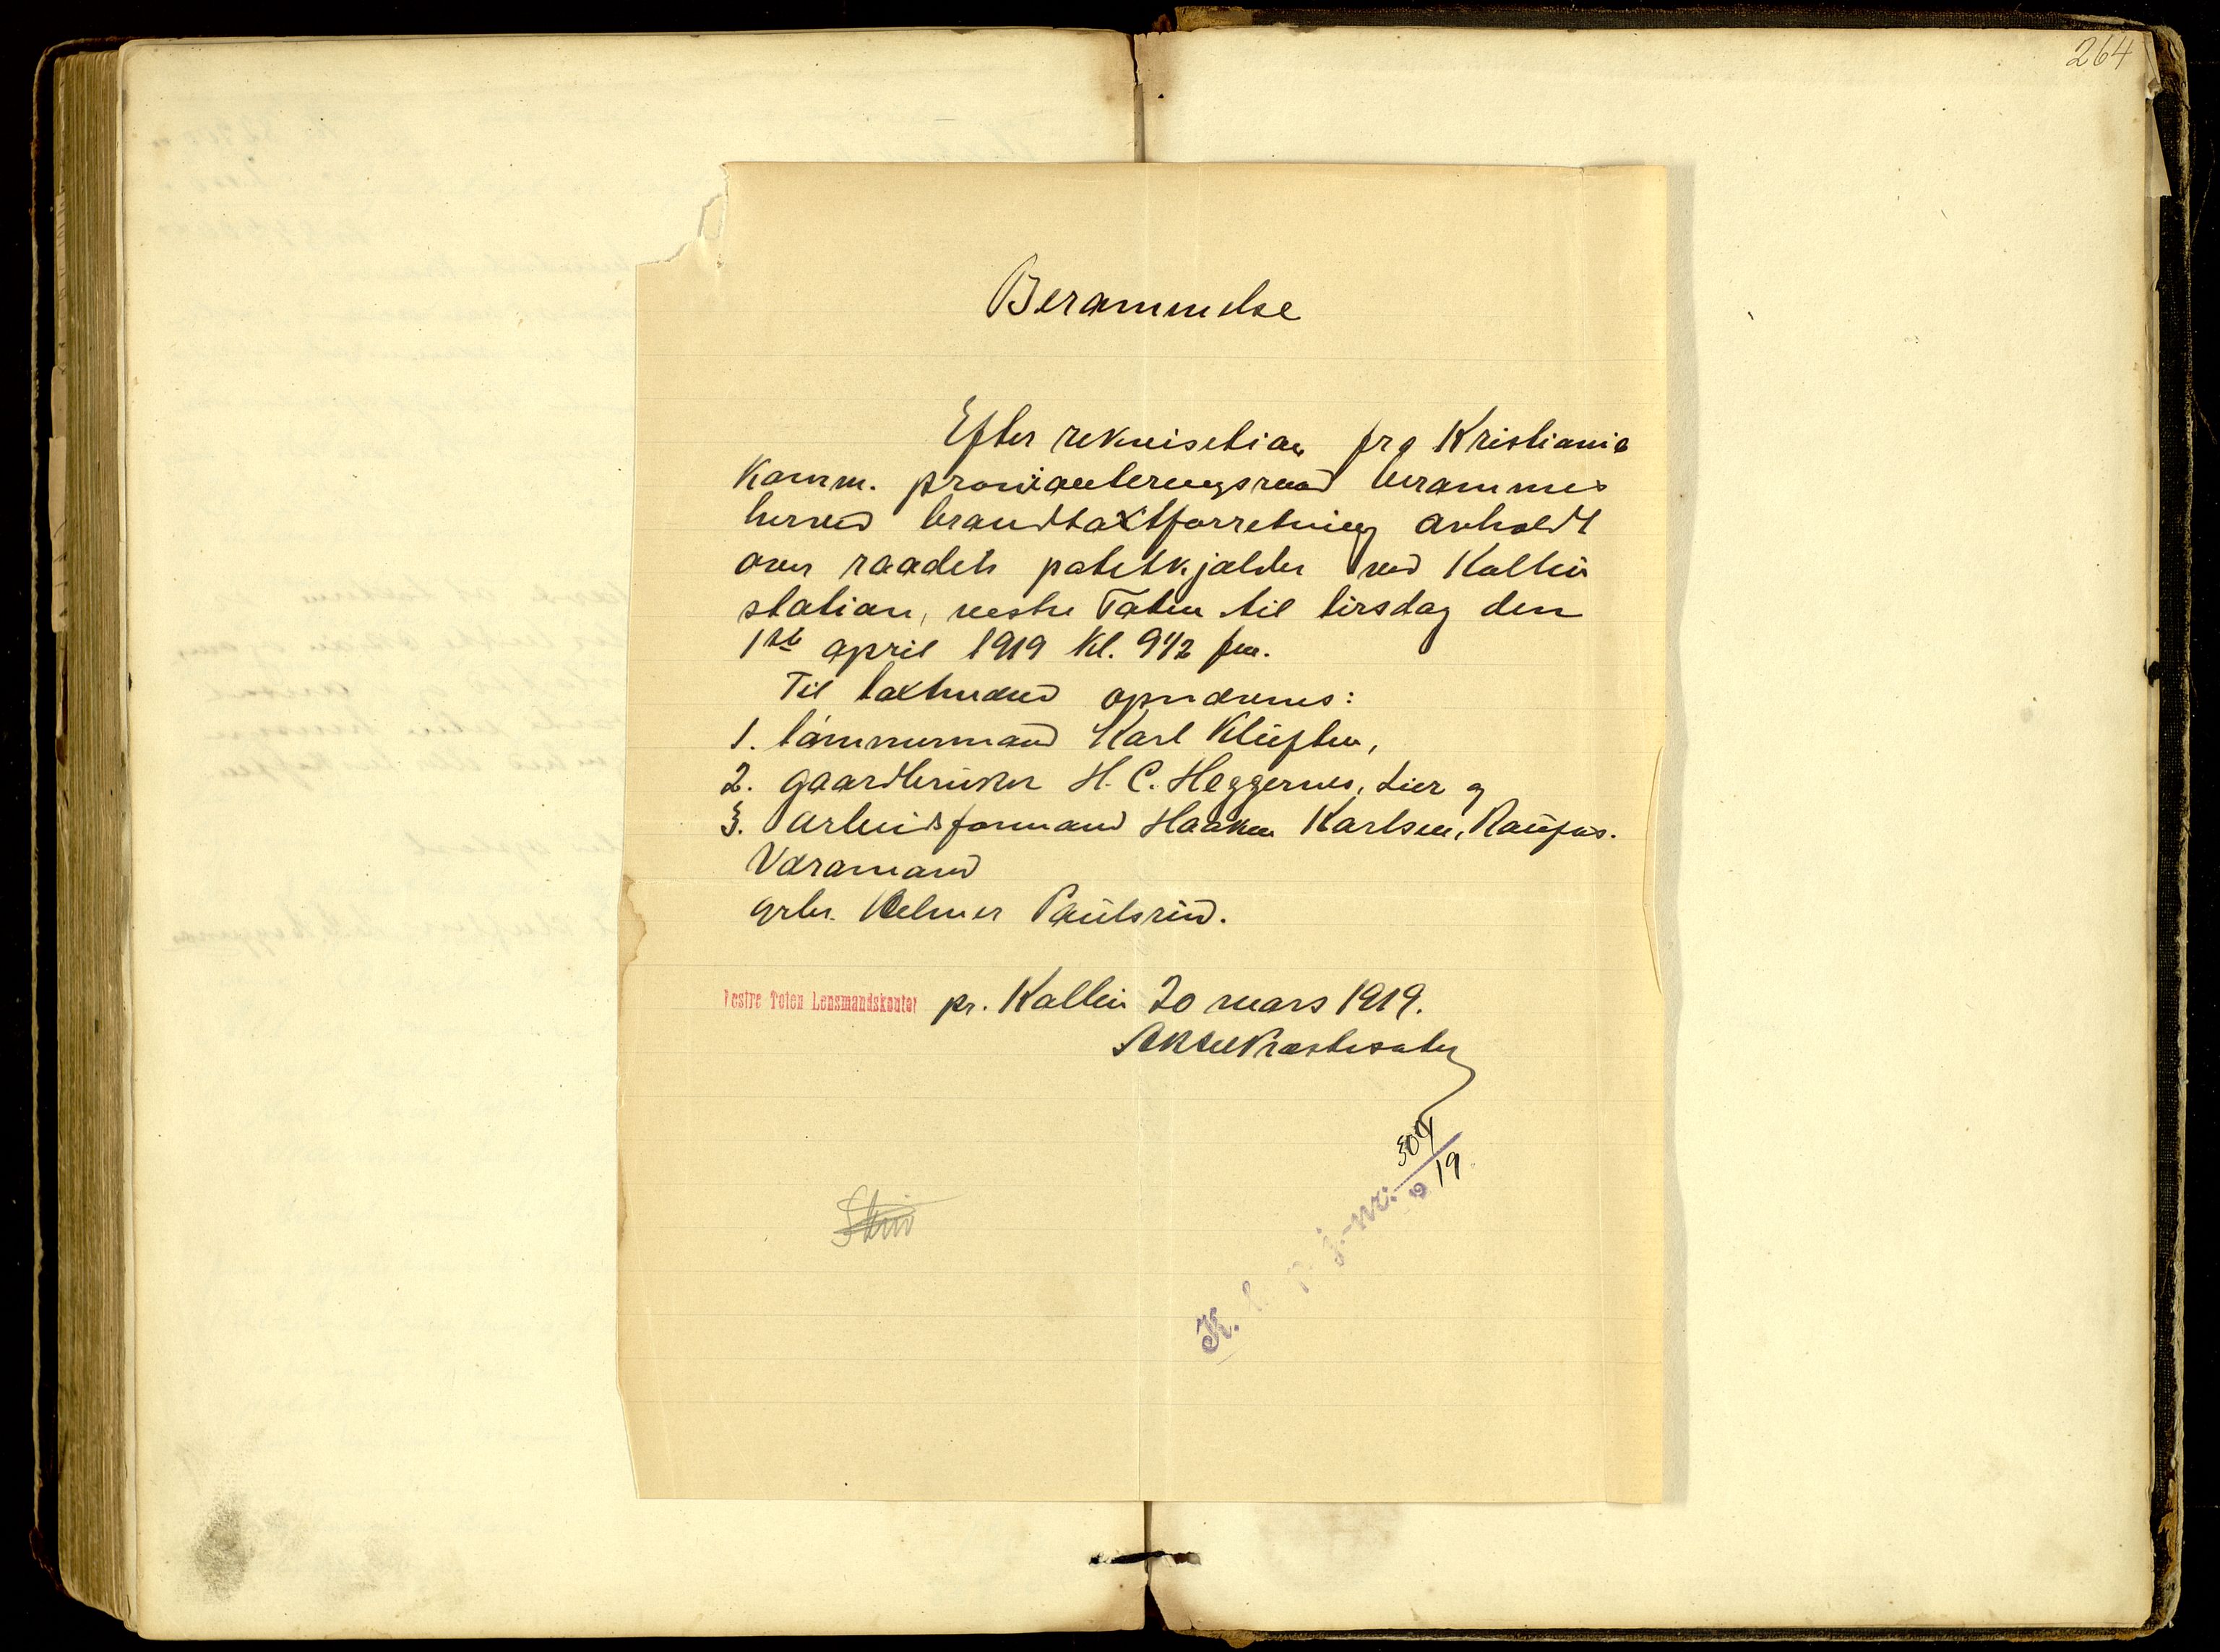 264
Berammelse
Efter rekvisition fra Kristiania
Komm. provianteringsraad berammes
herved brandtaxtforretning avholdt
over raadets potetkjælder ved Kolbu
station, vestre Toten til tirsdag den
1ste april 1919 kl. 9 1/2 fm.
Til taxtmænd opnævnes:
1. tømmermand Karl Kluften,
2. gaardbruker H. C. Heggernes, Lier og
3. arbeidsformand Haakon Karlsen, Raufos.
Varamand
grbr. Helmer Paulsrud.
Vestre Toten Lensmandskontor pr. Kolbu 20 mars 1919.
K. p. j.-nr. 504/1919